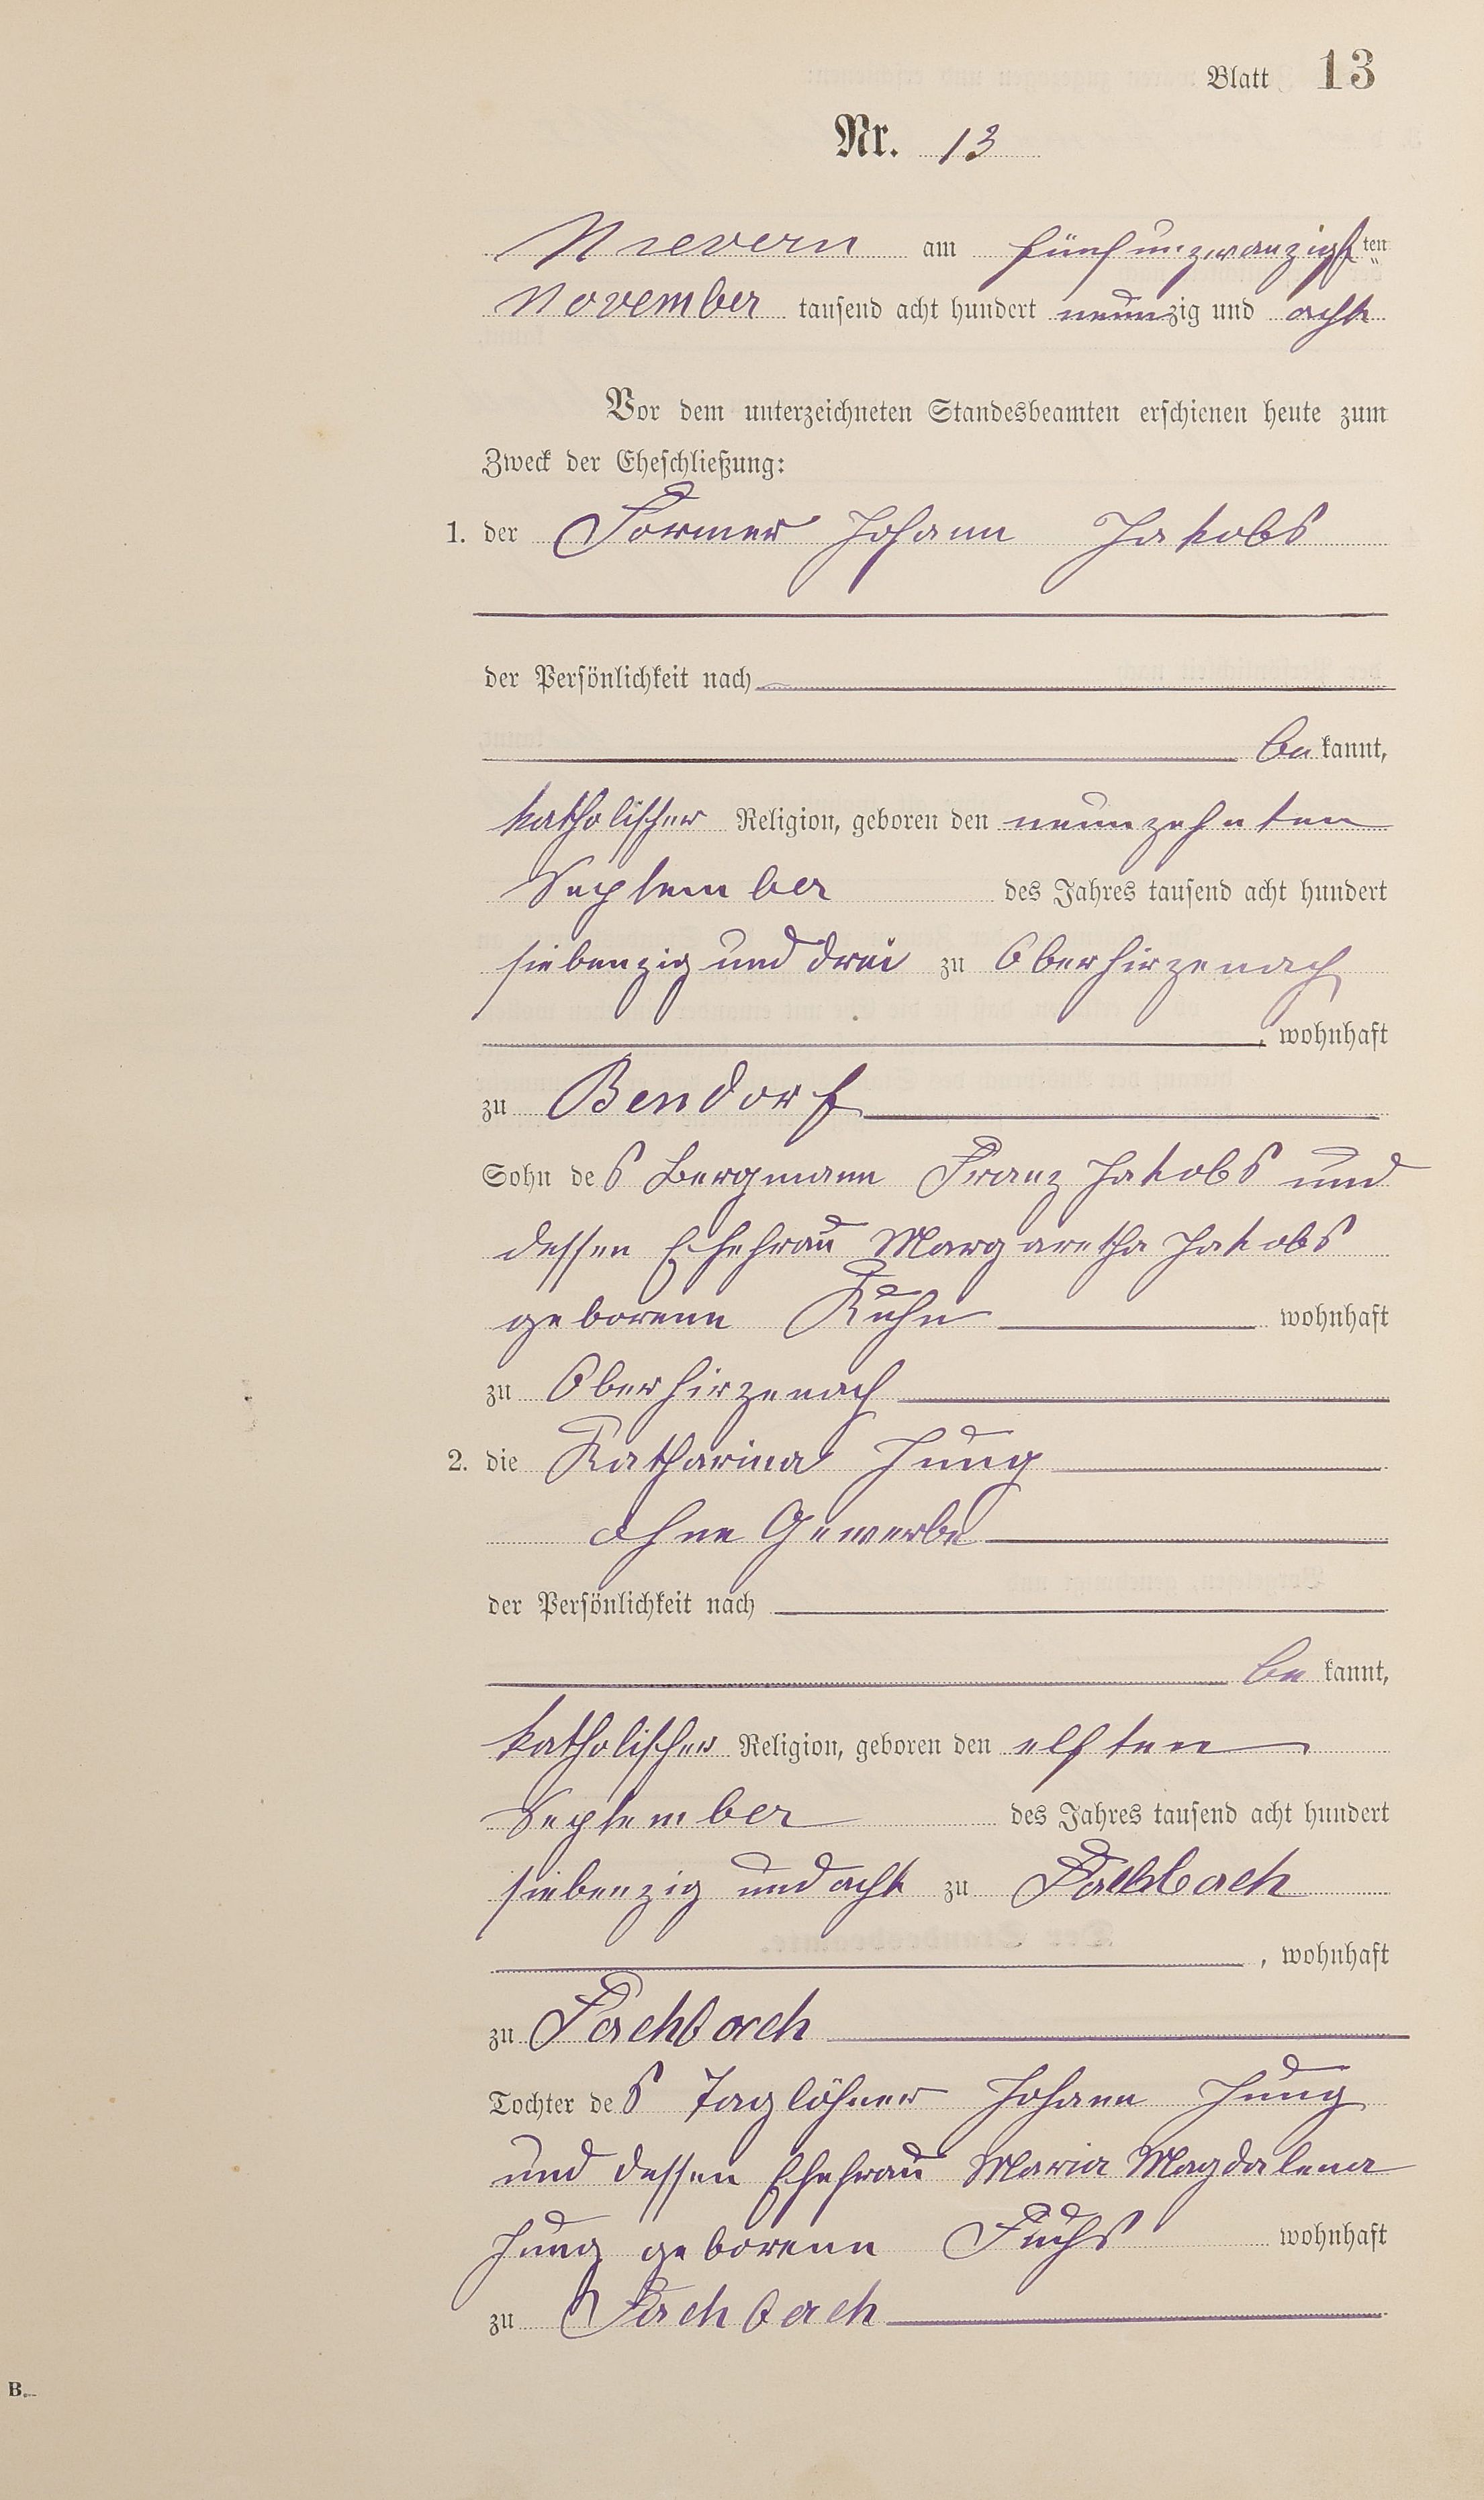 Blatt 13
Nr. 13
Nievern am fünfunzwanzigsten
November tausend acht hundert neunzig und acht
Vor dem unterzeichneten Standesbeamten erschienen heute zum
Zweck der Eheschließung:
1. der Former Johann Jakobs
der Persönlichkeit nach
bekannt,
katholischer Religion, geboren den neunzehnten
September des Jahres tausend acht hundert
siebenzig und drei zu Oberhirzenach
, wohnhaft
zu Bendorf
Sohn des Bergmann Franz Jakobs und
dessen Ehefrau Margaretha Jakobs
geborene Kuhn wohnhaft
zu Oberhirzenach
2. die Katharina Jung
ohne Gewerbe
der Persönlichkeit nach
bekannt,
katholischer Religion, geboren den elften
September des Jahres tausend acht hundert
siebenzig und acht zu Fachbach
, wohnhaft
zu Fachbach
Tochter des Taglöhner Johann Jung
und dessen Ehefrau Maria Magdalena
Jung geborene Fuchs wohnhaft
zu Fachbach
B.